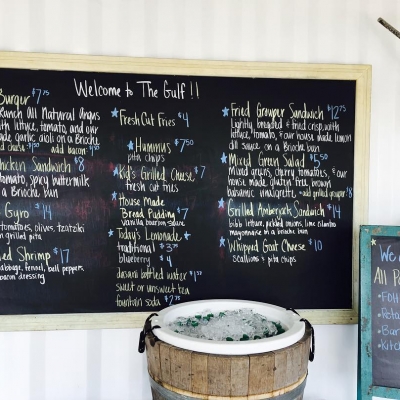 Welcome to The Gulf !!
Burger $7.75
Ranch All Natural Angus
with lettuce, tomato, and our
made garlic aioli on a Brioche
bacon $1
Chicken Sandwich $8
Tomato, spicy buttermilk
a Brioche bun
Gyro $14
tomatoes, olives, tzatziki
grilled pita
Shrimp $17
cabbage, fennel, bell peppers
bacon dressing
Fresh Cut Fries $4
Hummus $7.50
pita chips
Kid's Grilled Cheese $7
fresh cut fries
House Made
Bread Pudding $7
vanilla bourbon sauce
Today's Lemonade
traditional $3.75
blueberry $4
dasani bottled water
sweet or unsweet tea
fountain soda
Fried Grouper Sandwich $12.75
Lightly breaded & fried crisp with
lettuce, tomato, & our house made lemon
aioli on a Brioche bun
Mixed Green Salad $5.50
Mixed greens, cherry tomatoes, & our
house made gluten free brown
balsamic vinaigrette
Grilled Amberjack Sandwich $14
bibb lettuce, pickled onions, lime cilantro
mayonnaise on a brioche bun
Whipped Goat Cheese $10
Scallions & pita chips
We
All